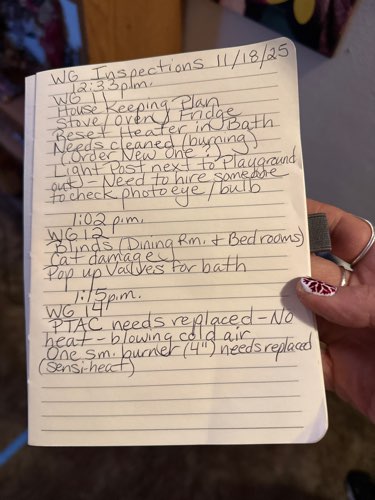 WG Inspections 11/18/25
12:33p.m.
WG 11
House Keeping Plan
Stove/Oven/Fridge
Reset Heater in Bath
Needs cleaned (burning)
(Order New One?)
Light Post next to Playground
out) - Need to hire someone
to check photo eye/bulb
1:02 p.m.
WG 12
Blinds (Dining Rm. & Bedrooms)
Cat damage
Pop up Valves for bath
1:15p.m.
WG 14
PTAC needs replaced - No
heat - blowing cold air
One sm. burner (4") needs replaced
(sensi-heat)